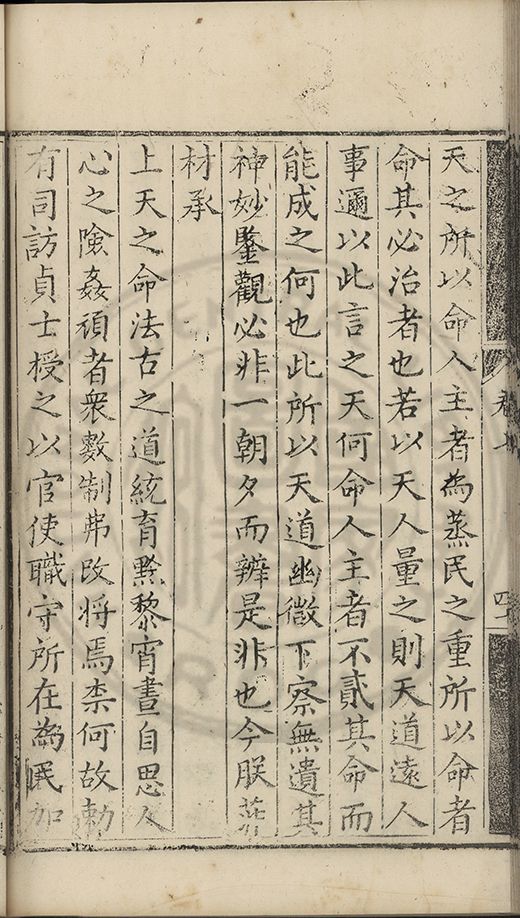 卷七
四
天之所以命人主者為蒸民之重所以命者
命其必治者也若以天人量之則天道遠人
事邇以此言之天何命人主者不貳其命而
能成之何也此所以天道幽微下察無遺其
神妙鑒觀必非一朝夕而辨是非也今朕菲
材承
上天之命法古之道統育黔黎宵晝自思人
心之險姦頑者衆數制弗改將焉柰何故勑
有司訪貞士授之以官使職守所在為民加